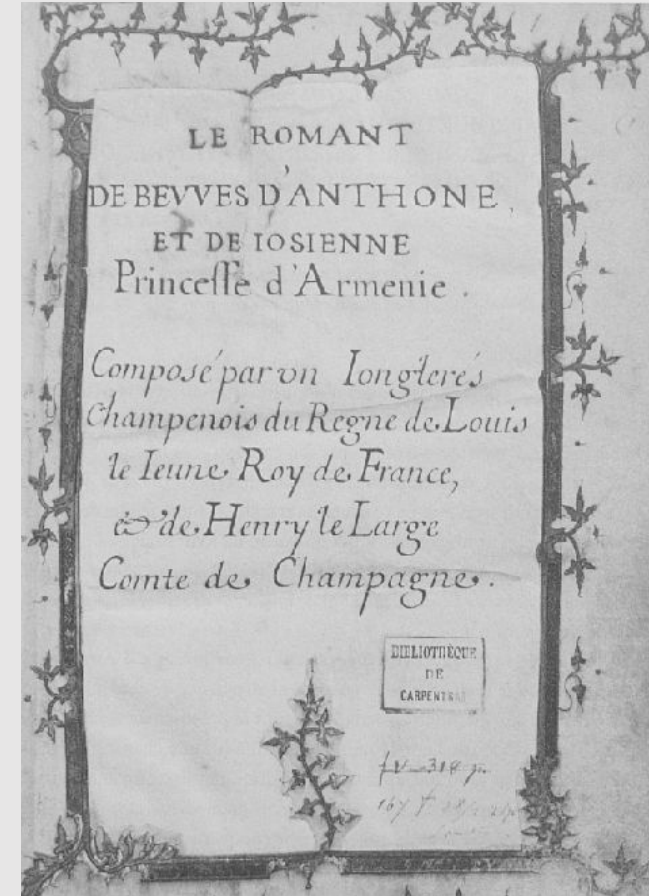 LE ROMANT
DE BEVVES D'ANTHONE,
ET DE IOSIENNE
Princesse d'Armenie.
Composé par vn Iongleres
Champenois du Regne de Louis
le Ieune Roy de France,
& de Henry le Large
Comte de Champagne.
BIBLIOTHÈQUE
DE
CARPENTRAS
167